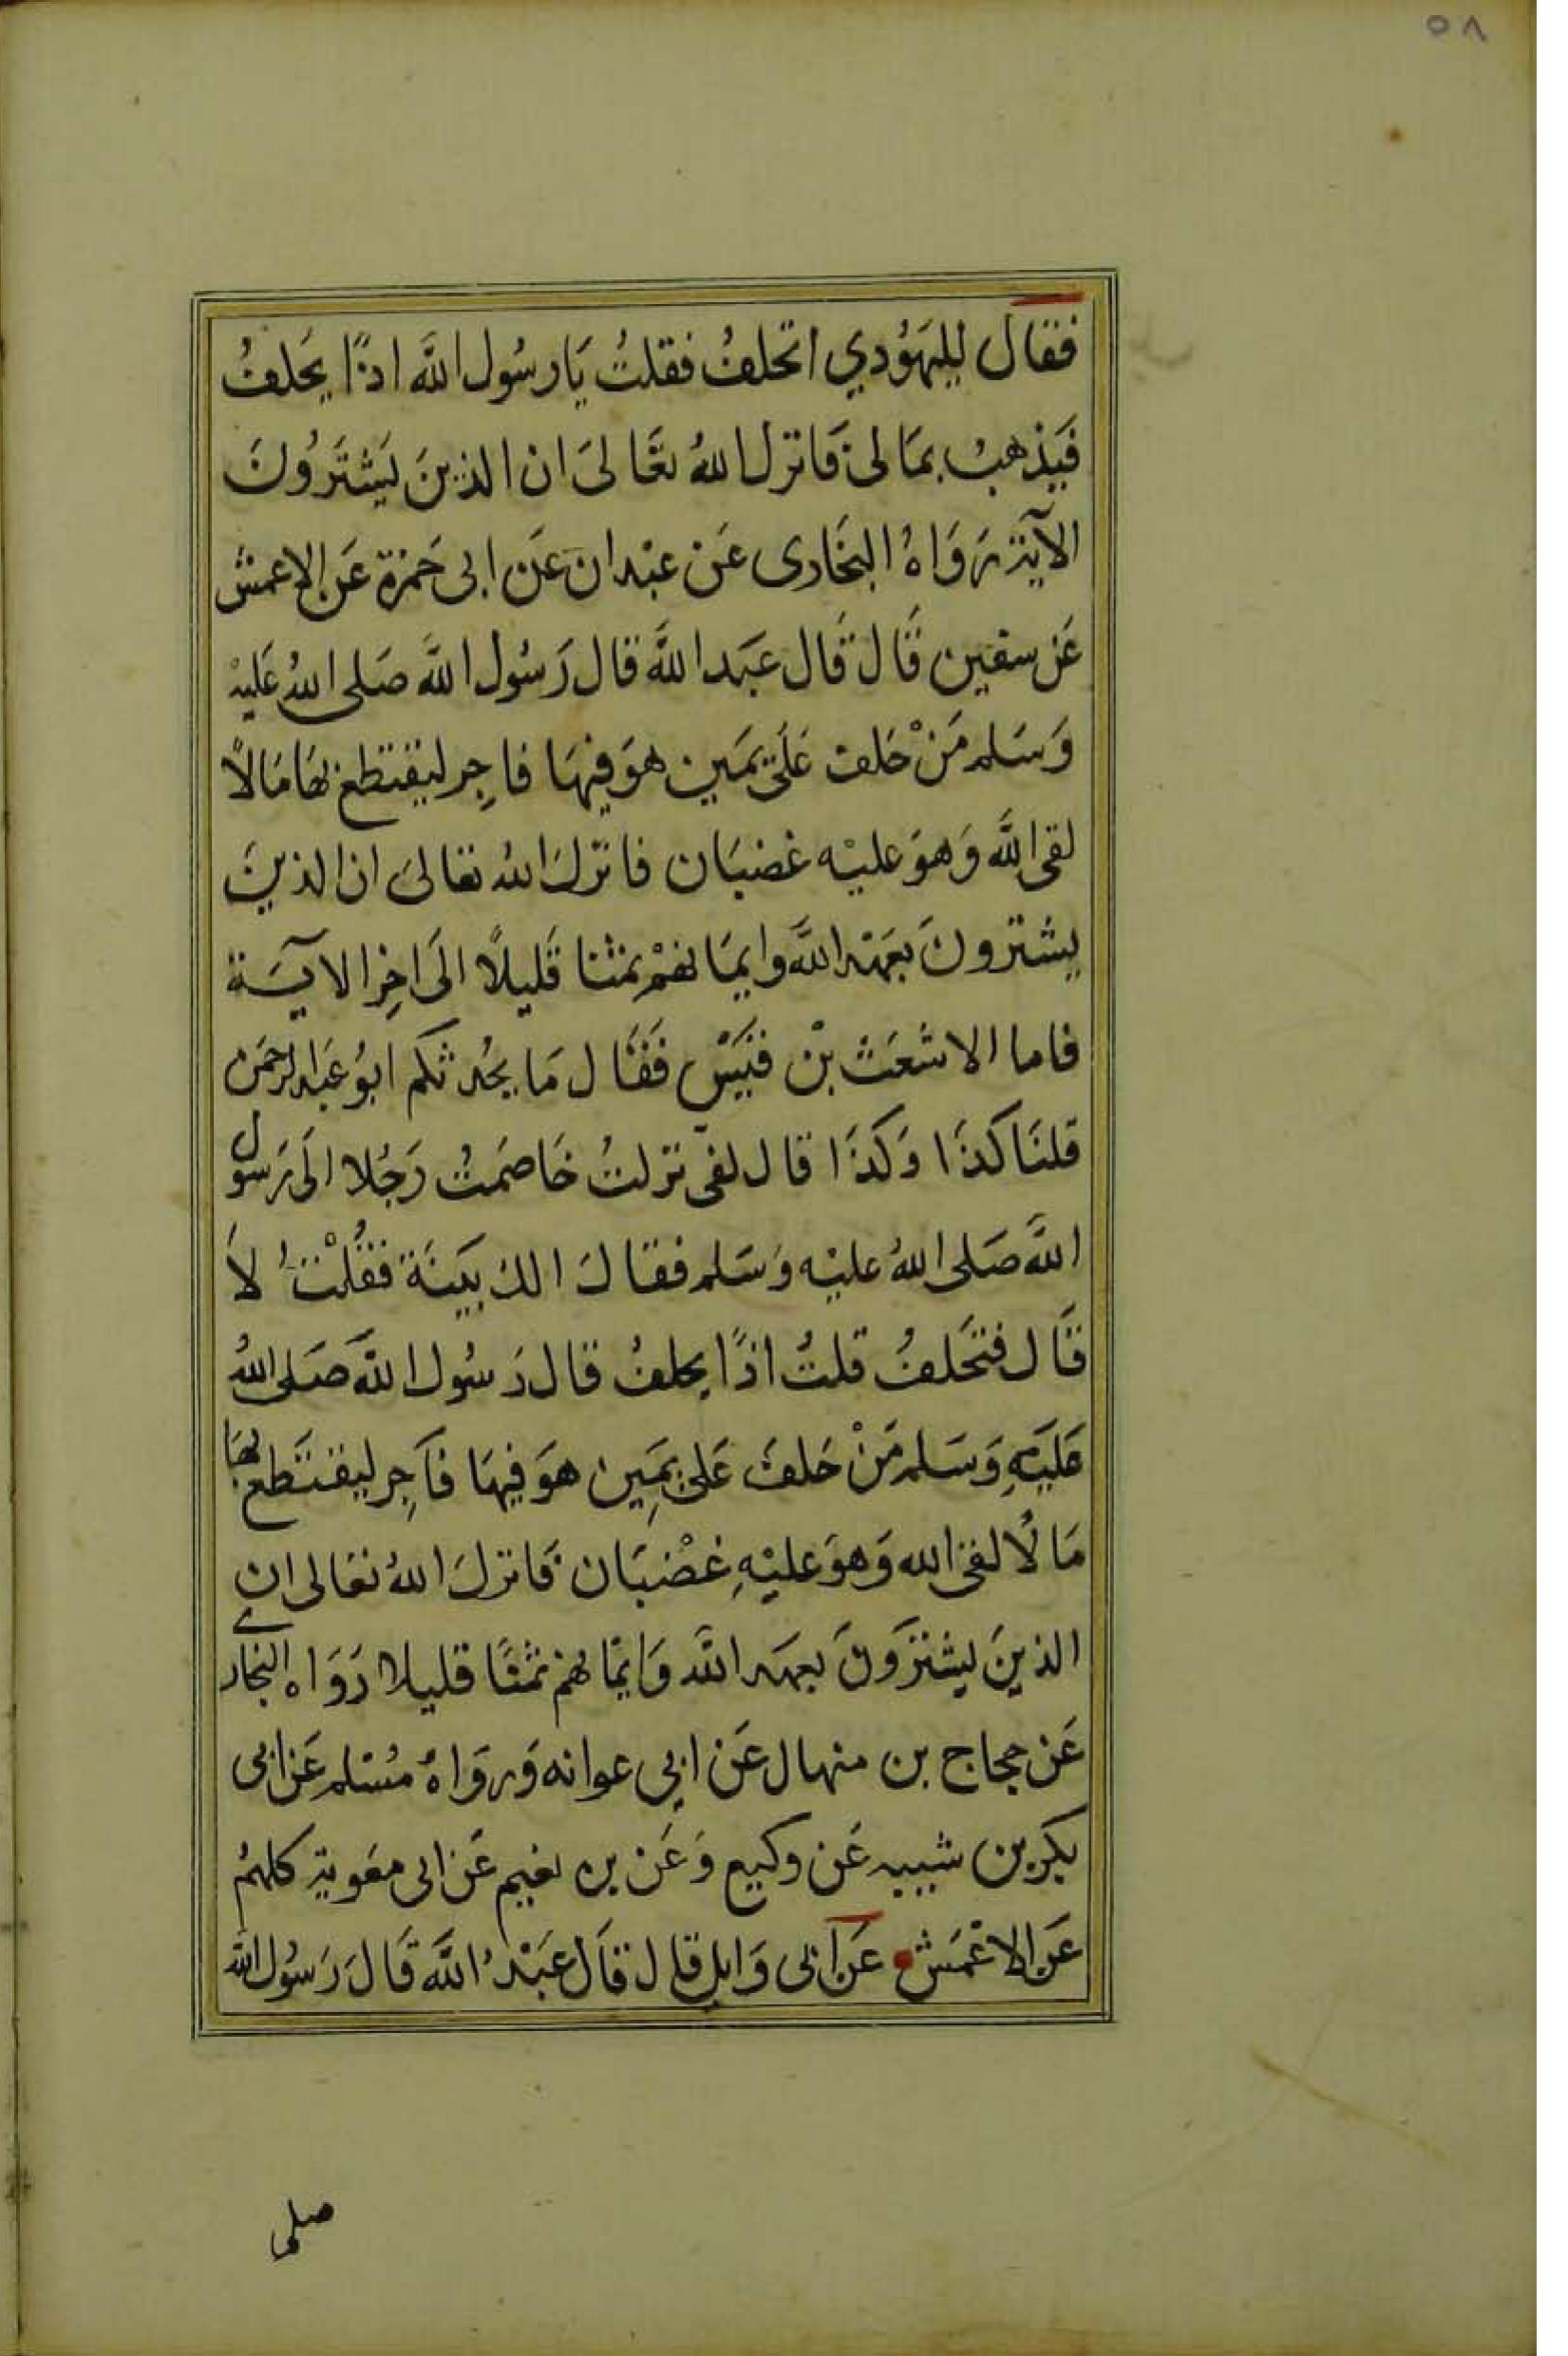 ٥٨
فقال لليهُودي اتحلفُ فقلتُ يَا رسُول اللَّه اذًا يحلفُ
فَيذهبُ بمَالى فَانزل اللهُ تعَالىَ ان الذينَ يَشتَرُونَ
الآيَة رَوَاهُ البخَارى عَن عبْدان عَن ابى حَمزة عَن الاعمش
عَن سفين قَال قَال عبَد اللَّه قال رَسُول اللَّه صَلى اللهُ عَليْه
وَسَلم مَنْ حَلف عَلَى يمَين هوَ فيهَا فاجِر ليقتطع بهَا مَالاً
لقى اللَّه وَهوَ عليْه غضبَان فانزلَ الله تعالىَ ان الذينَ
يشترونَ بعَهْد اللَّه وايمَانهمْ ثمنا قَليلاً الَى اخِر الايَة
فاما الاشعَث بْن قيَسْ فَقَال مَا يحُدثكم ابوُ عَبد الرحمَن
قلنَا كَذَا وَكَذَا قال لفى نزلتُ خَاصَمتُ رَجُلا الَى رَسول
اللَّه صَلى اللهُ عليْه وَسَلم فقالَ الك بيَنَة فقُلْتُ لاَ
قَال فتَحَلفُ قلتُ اذًا يحلفُ قال رَسُول اللَّه صَلى اللهُ
عَليَهِ وَسَلم مَنْ حَلفَ عَلىَ يمَيِن هوَ فيهَا فَاجِر ليقتَطع بهَا
مَالًا لقى الله وَهوَ عليْهِ غضْبَان فَانزلَ اللهُ تعَالى ان
الذينَ يشترَونَ بعهَد اللَّه وَايمَانهمْ ثمَنًا قليلا رَوَاه البخارى
عَن حجاج بن منهال عَن ابي عوانه وَرَوَاهُ مُسْلم عَن ابى
بكر بن شيبه عَن وكيع وَعَن بن نمير عَن ابى معَوية كلهمُ
عَن الاعْمَش عَن ابى وَايل قال قَال عبَدُ اللَّه قَالَ رَسُول الله
صلى